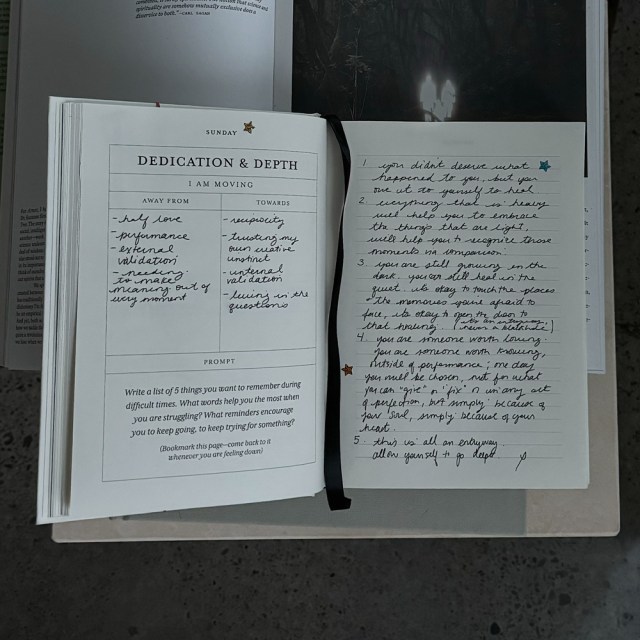 spirituality are somehow mutually exclusive does a
disservice to both." —CARL SAGAN
SUNDAY
DEDICATION & DEPTH
I AM MOVING
AWAY FROM
- half love
- performance
- external
validation
- needing
to make
meaning out of
every moment
TOWARDS
- reciprocity
- trusting my
own creative
instinct
- internal
validation
- living in the
questions
PROMPT
Write a list of 5 things you want to remember during
difficult times. What words help you the most when
you are struggling? What reminders encourage
you to keep going, to keep trying for something?
(Bookmark this page—come back to it
whenever you are feeling down)
1. you didn't deserve what
happened to you, but you
owe it to yourself to heal
2. everything that is heavy
will help you to embrace
the things that are light,
will help you to recognize those
moments in comparison.
3. you are still growing in the
dark. you can still heal in the
quiet. its okay to touch the places
the memories you're afraid to
face, its okay to open the door to
that healing. [its an entryway
never a blockade]
4. you are someone worth loving.
you are someone worth knowing,
outside of performance; one day
you will be chosen, not for what
you can "give" or "fix" or in any act
of perfection, but simply because of
your soul, simply because of your
heart.
5. this is all an entryway.
allow yourself to go deeper